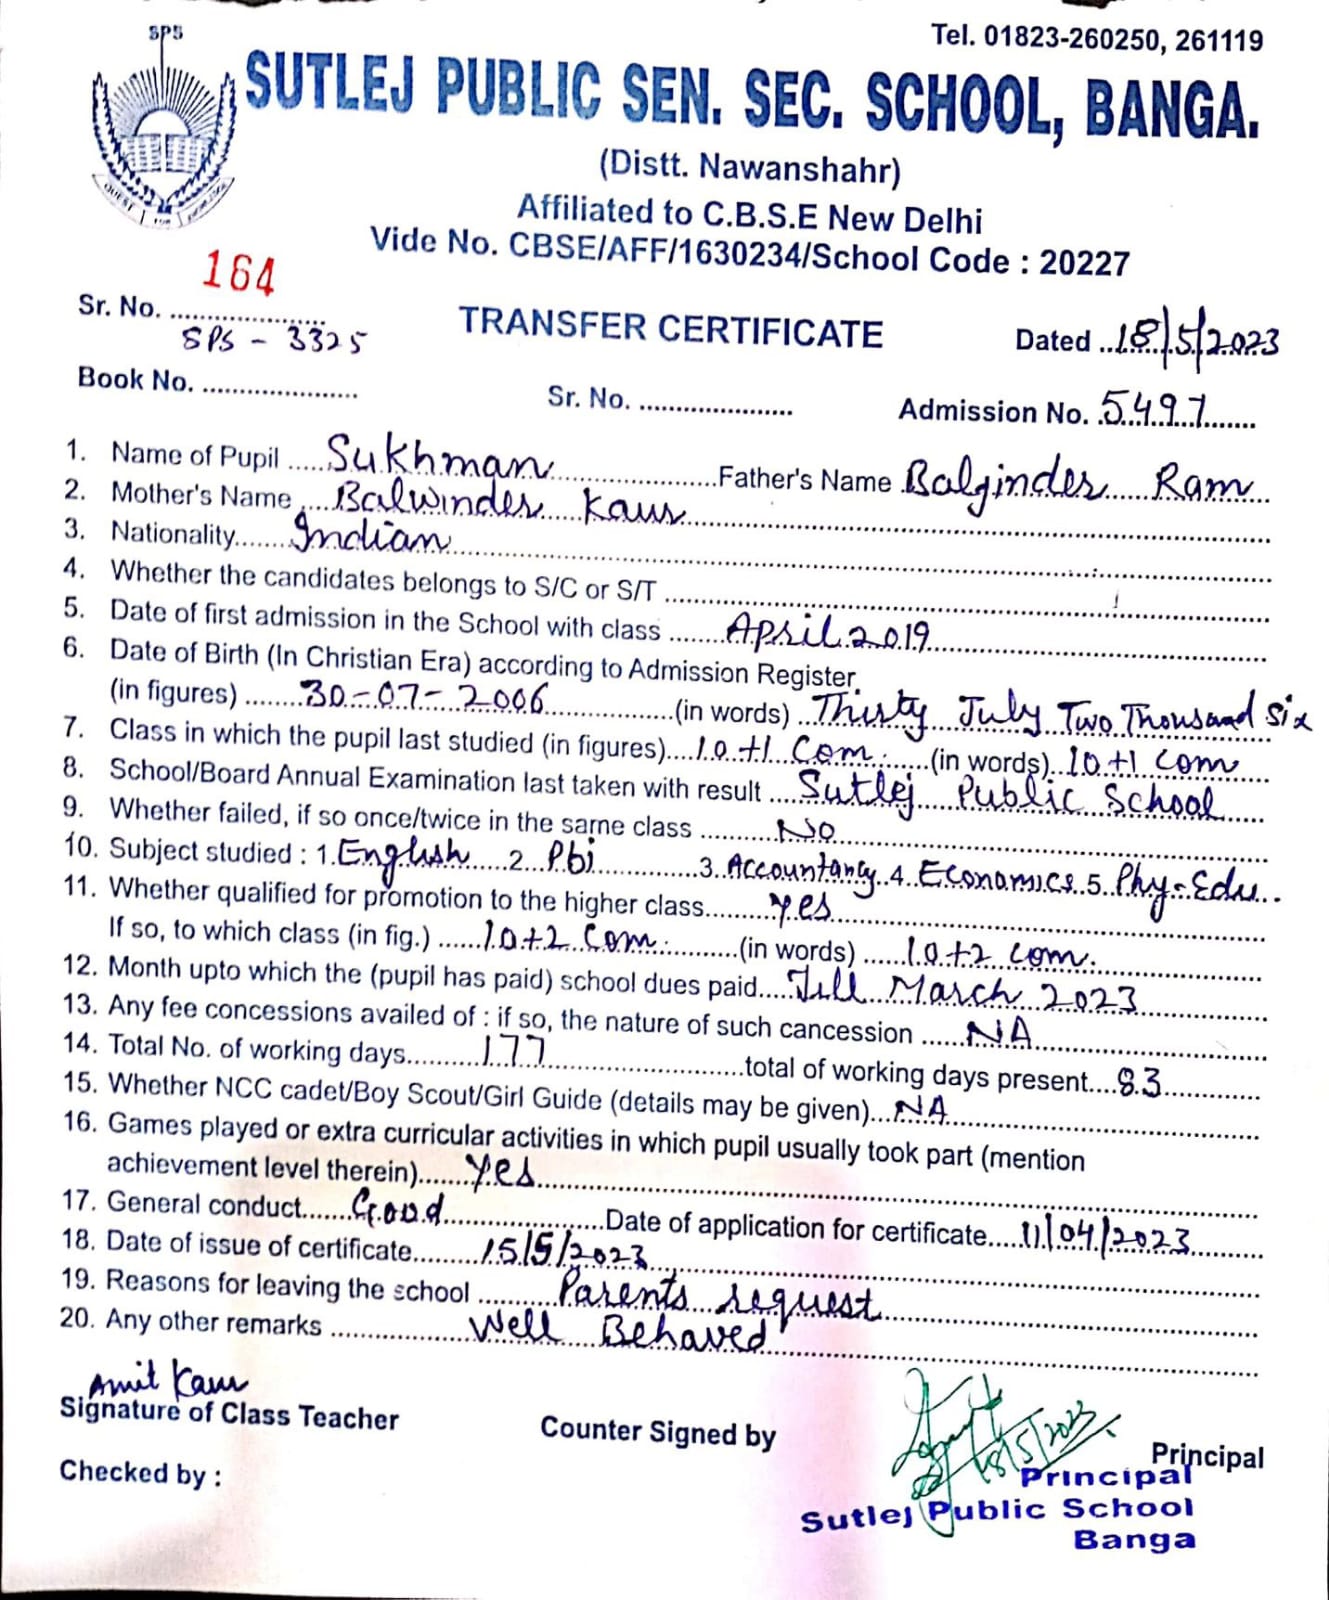 SPS
Tel. 01823-260250, 261119
SUTLEJ PUBLIC SEN. SEC. SCHOOL, BANGA.
(Distt. Nawanshahr)
Affiliated to C.B.S.E New Delhi
Vide No. CBSE/AFF/1630234/School Code : 20227
164
Sr. No. ......................
SPS - 3325
TRANSFER CERTIFICATE
Dated ..18/5/2023
Book No. ......................
Sr. No. ......................
Admission No. 5497
1. Name of Pupil .....Sukhman..........Father's Name Balginder Ram
2. Mother's Name ....Balwinder Kaur
3. Nationality........Indian
4. Whether the candidates belongs to S/C or S/T ..........
5. Date of first admission in the School with class ........April 2019
6. Date of Birth (In Christian Era) according to Admission Register.
(in figures) ........30-07-2006..........(in words) ..Thirty July Two Thousand Six
7. Class in which the pupil last studied (in figures)....10+1 Com.......(in words)..10+1 Com
8. School/Board Annual Examination last taken with result .....Sutlej Public School
9. Whether failed, if so once/twice in the same class ..........No
10. Subject studied : 1.English....2..Pbi..........3..Accountancy..4..Economics.5..Phy-Edu...
11. Whether qualified for promotion to the higher class.........yes
If so, to which class (in fig.) ......10+2 Com..........(in words) ......10+2 Com.
12. Month upto which the (pupil has paid) school dues paid.....Till March 2023
13. Any fee concessions availed of : if so, the nature of such cancession ......NA
14. Total No. of working days..........177..........total of working days present....83
15. Whether NCC cadet/Boy Scout/Girl Guide (details may be given)...NA
16. Games played or extra curricular activities in which pupil usually took part (mention
achievement level therein).......yes
17. General conduct.......Good..........Date of application for certificate....11/04/2023
18. Date of issue of certificate.........15/5/2023
19. Reasons for leaving the school ..........Parents request
20. Any other remarks ..........Well Behaved
Amit Kaur
Signature of Class Teacher
Counter Signed by
18/5/2023
Principal
Checked by :
Principal
Sutlej Public School
Banga